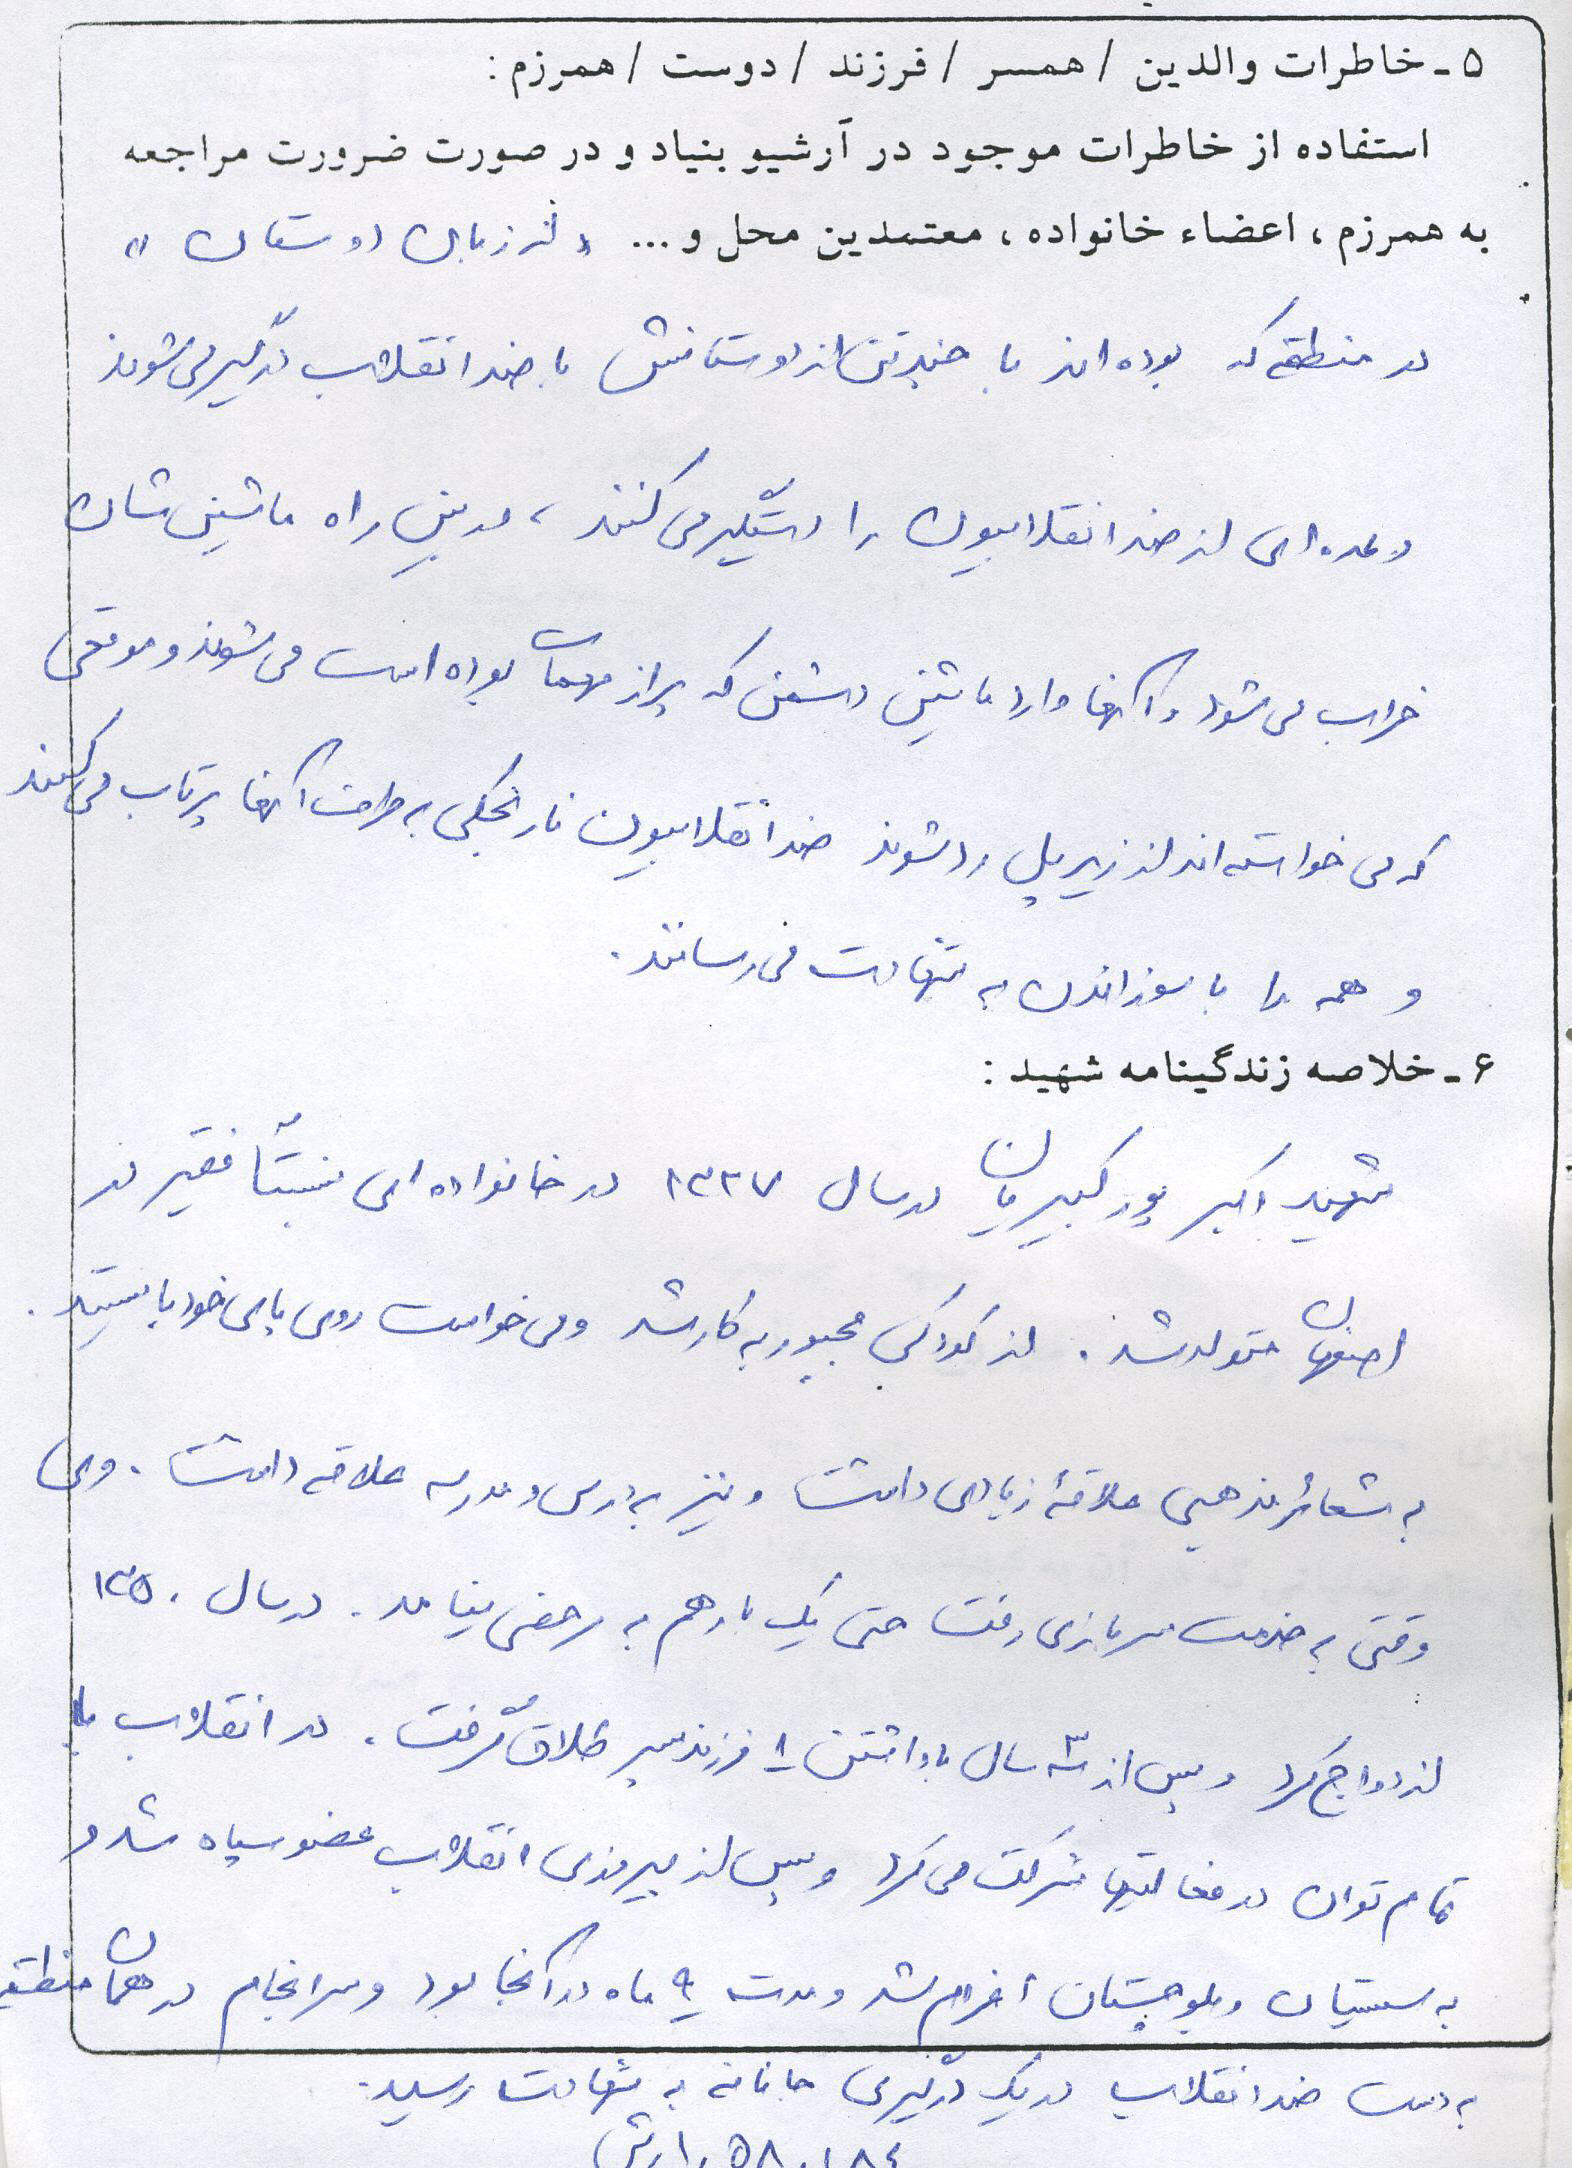 ۵ ـ خاطرات والدین / همسر / فرزند / دوست / همرزم :
استفاده از خاطرات موجود در آرشیو بنیاد و در صورت ضرورت مراجعه
به همرزم ، اعضاء خانواده ، معتمدین محل و ... « از زبان دوستان »
در منطقه که بوده اند با چند تن از دوستانش با ضد انقلاب درگیر می شوند
و عده ای از ضد انقلابیون را دستگیر می کنند ، در بین راه ماشین شان
خراب می شود و آنها وارد ماشین دشمن که پر از مهمات بوده است می شوند و موقعی
که می خواسته اند از زیر پل رد شوند ضد انقلابیون نارنجکی به طرف آنها پرتاب می کنند
و همه را با سوزاندن به شهادت می رسانند .
۶ ـ خلاصه زندگینامه شهید :
شهید اکبر پور کبیریان در سال ۱۳۲۷ در خانواده ای نسبتاً فقیر در
اصفهان متولد شد . از کودکی مجبور به کار شد و می خواست روی پای خود بایستد .
به شعائر مذهبی علاقهٔ زیادی داشت و نیز به درس و مدرسه علاقه داشت . وی
وقتی به خدمت سربازی رفت حتی یک بار هم به مرخصی نیامد . در سال ۱۳۵۰
ازدواج کرد و پس از ۳ سال با داشتن ۱ فرزند پسر طلاق گرفت . در انقلاب با
تمام توان در فعالیتها شرکت می کرد و پس از پیروزی انقلاب عضو سپاه شد و
به سیستان و بلوچستان اعزام شد و مدت ۹ ماه در آنجا بود و سرانجام در همان منطقه
به دست ضد انقلاب در یک درگیری به شهادت رسید .